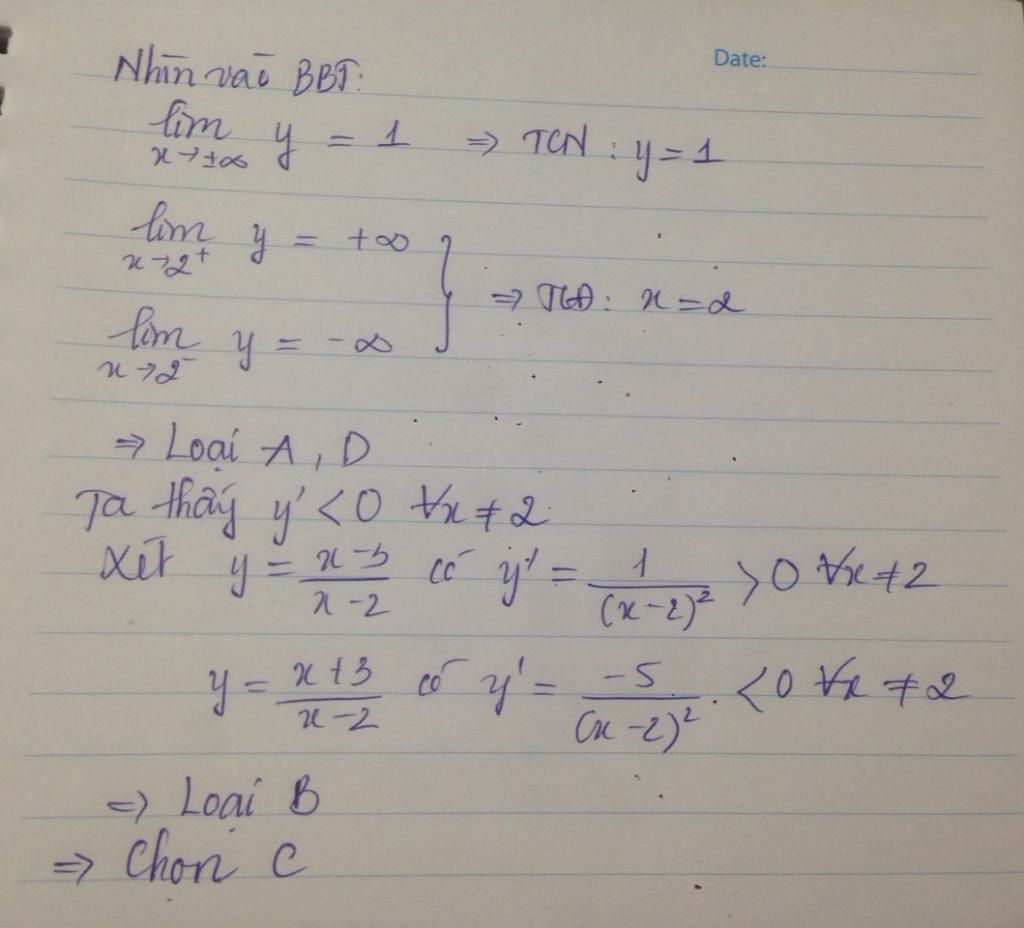 Date:
Nhìn vào BBT:
lim y = 1 ⇒ TCN : y = 1
x→±∞
lim y = +∞
x→2⁺
⇒ TCĐ: x = 2
lim y = -∞
x→2⁻
⇒ Loại A, D
Ta thấy y' < 0 ∀x ≠ 2
Xét y = (x-3)/(x-2) có y' = 1/(x-2)² > 0 ∀x ≠ 2
y = (x+3)/(x-2) có y' = -5/(x-2)² . < 0 ∀x ≠ 2
⇒ Loại B
⇒ Chọn C